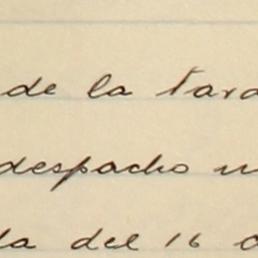 de la tard
despacho
da del 16 d